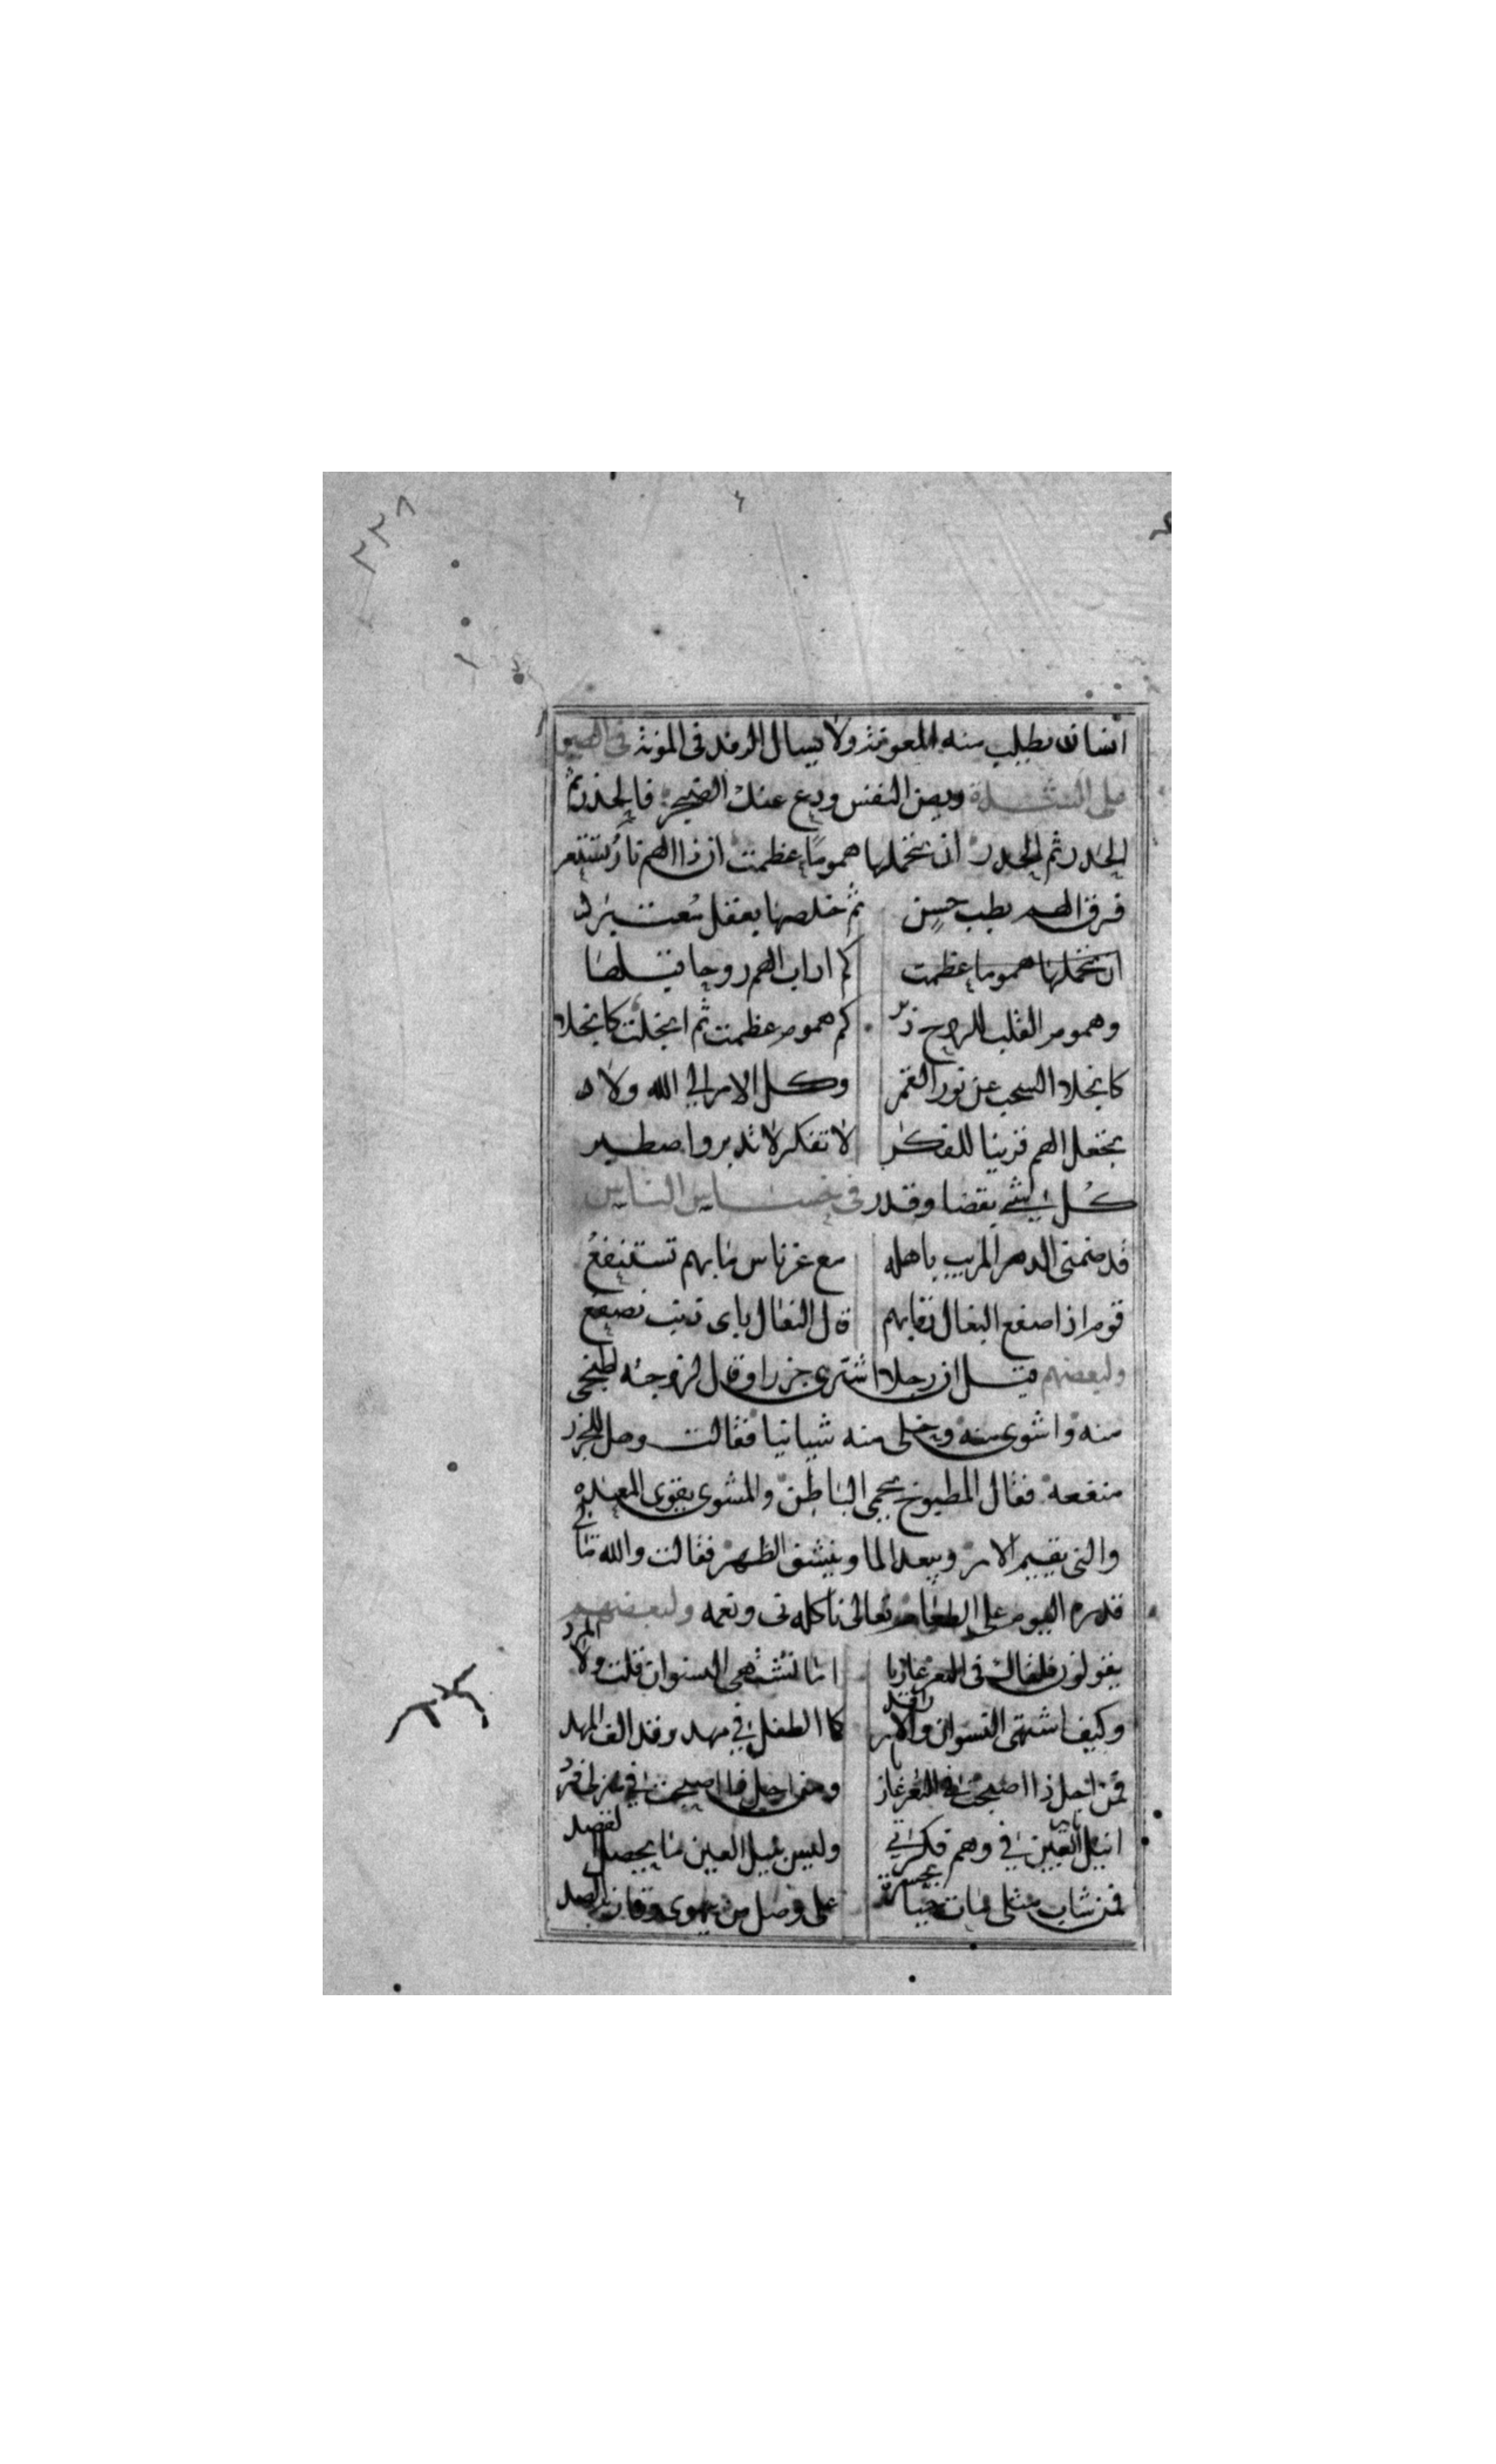 ٢٢٨
انسان يطلب منه المعونة ولا يسال الرفد في المونة في الصبر
على الشدة وصن النفس ودع عنك الضجر فالحذر ثم
الحذر ثم الحذر ان تحملها هموما عظمت ان ذا الهم نار تستعر
فرق الهم بطب حسن ثم خلصها بعقل معتبر
ان تحملها هموما عظمت كم اداب الهم روحا
وهموم القلب للروح كم هموم عظمت ثم انجلت كانجلاء
كانجلاء السحب عن نور القمر وكل الامر الى الله ولا
تجعل الهم قرينا للفكر لا تفكر لا تدبر واصطبر
كل شي بقضا وقدر في خساس الناس
قد ضمني الدهر المريب باهله مع غزناس ما بهم تستنفع
قوم اذا صفع النعال قفايهم قال النعال باى ذنب نصفع
ولبعضهم قيل ان رجلا اشترى جزرا وقال لزوجته اطبخي
منه واشوى منه وخلى منه شيا نيا فقالت وهل للجزر
منفعة فقال المطبوخ يحمى الباطن والمشوى يقوى المعده
والني يقيم الامر ويبعد الما وينشف الظهر فقالت والله ما في
قدره اليوم على الطعام تعالى ناكله نى ونعمه ولبعضهم
يقولون في العمر عازبا اما تشتهى النسوان قلت ولا المرد
وكيف اشتهى النسوان والاير راقد كما الطفل في مهد وقد الف المهد
فمن اجل ذا اصبحت في العمر عازبا ومن اجل ذا اصبحت في منزلى فرد
انيك العين في وهم فكرتي وليس بنيك العين ما يحصل القصد
فمن شاب مثلى مات حسرة على وصل من يهوى وفات